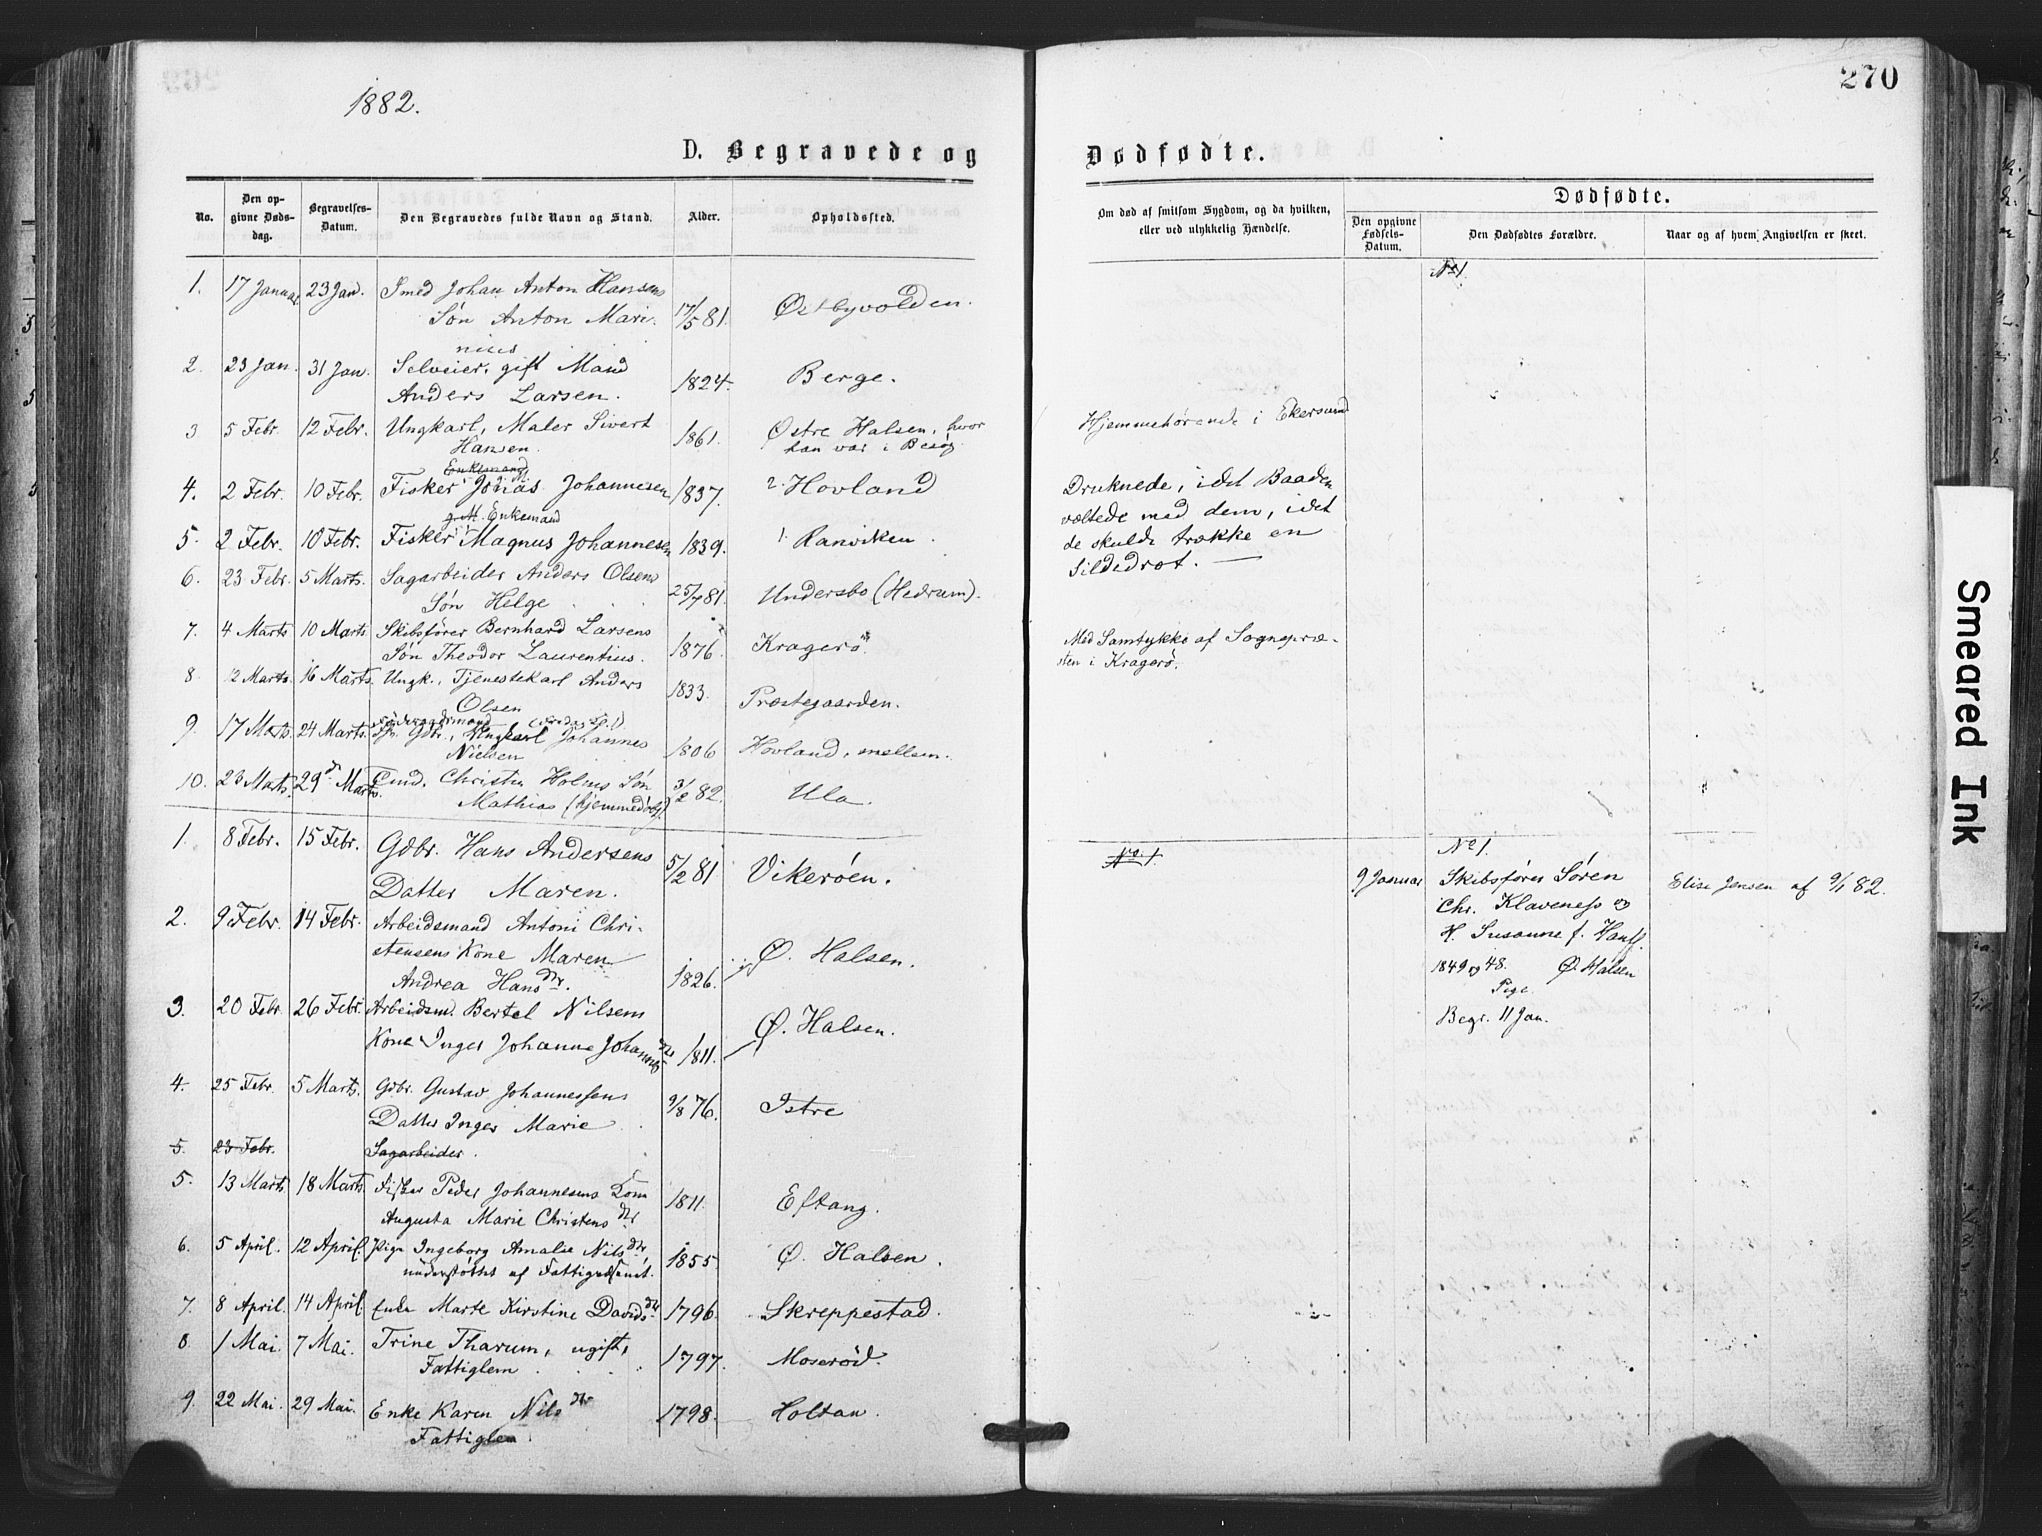 1882.
270
D. Begravede og Dødfødte.
No. | Den opgivne Dødsdag. | Begravelses-Datum. | Den Begravedes fulde Navn og Stand. | Alder. | Opholdsted. | Om død af smitsom Sygdom, og da hvilken, eller ved ulykkelig Hændelse. | Dødfødte. | Den opgivne Fødsels-Datum. | Den Dødfødtes Forældre. | Naar og af hvem Angivelsen er skeet.
1. 17 Januar 23 Jan. Smed Johan Anton Hansens
Søn Anton Mari- 17/5 81. Østbyvolden.
nius
2. 23 Jan. 31 Jan. Selveier, gift Mand
Anders Larsen. 1824. Berge.
3 5 Febr. 12 Febr. Ungkarl, Maler Sivert 1861. Østre Halsen, hvor
Hansen. han var i Besøg.
Enkemand
4. 2 Febr. 10 Febr. Fisker Johannesen 1837. 2. Hovland
g. M. Enkemand
5. 2 Febr. 10 Febr. Fisker Magnus Johannesen 1839. 1. Ranviken.
6. 23 Febr. 5 Marts. Sagarbeider Anders Olsens
Søn Helge 25/7 81. Undersbo (Hedrum).
7. 4 Marts 10 Marts Skibsfører Bernhard Larsens
Søn Theodor Laurentius. 1876. Kragerø.
8 12 Marts. 16 Marts. Ungk., Tjenestekarl Anders
Olsen 1833. Præstegaarden.
9. 17 Marts. 24 Marts. Gdbr., Ungkarl Johannes
Nielsen 1806 Hovland, mellem.
10. 23 Marts. 29 Marts. Holms Søn
Mathias (hjemmedøbt). 3/2 82. Ula.
1. 8 Febr. 15 Febr. Gdbr. Hans Andersens
Datter Maren. 5/2 81 Vikerøen.
2. 9 Febr. 14 Febr. Arbeidsmand Antoni Chri-
stensens Kone Maren
Andrea Hansdtr. 1826. Ø. Halsen.
3. 20 Febr. 26 Febr. Arbeidsm. Bertel Nilsens
Kone Inger Johanne Johannesdtr 1811. Ø. Halsen.
4. 25 Febr. 5 Marts. Gdbr. Gustav Johannessens
Datter Inger Marie 9/8 76. Istre
5. 23 Febr. Sagarbeider.
5. 13 Marts 18 Marts Fisker Peder Johannesens Kone
Augusta Marie Christensdtr 1811. Eftang.
6. 5 April. 12 April. Pige Ingeborg Amalie Nilsdtr,
understøttet af Fattigvæsenet. 1855. Ø. Halsen.
7. 8 April. 14 April Enke Marte Kirstine Davidsdtr 1796. Skreppestad.
8 1 Mai. 7 Mai. Trine Tharum, ugift,
Fattiglem 1797. Moserød.
9. 22 Mai. 29 Mai. Enke Karen Nilsdtr 1798. Holtan.
Fattiglem
Hjemmehørende i Ekersund
Druknede, idet Baaden
væltede med dem, idet
de skulde trække en
Sildedrot.
Med Samtykke af Sognepræ-
sten i Kragerø.
No. 1.
No 1.
No 1.
9 Januar Skibsfører Søren
Chr. Klaveness og
H. Susanne f.
1849 og 48. Ø. Halsen
Pige.
Begr. 11 Jan.
Elise Jensen af 9/1 82.
Smeared Ink